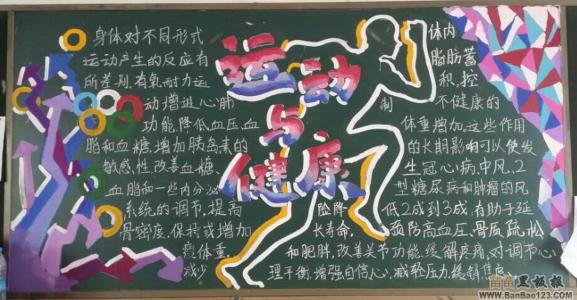 运动
与
健康
身体对不同形式
运动产生的反应有
所差别,有氧耐力运
动增进心肺
功能,降低血压,血
脂和血糖,增加胰岛素的
敏感性,改善血糖
血脂和一些内分泌
系统的调节,提高
骨密度,保持或增加
瘦体重,
减少
体内
脂肪蓄
积,控
制
不健康的
体重增加,这些作用
的长期影响可以使发
生冠心病,中风,2
型糖尿病和肿瘤的风
险降低2成到3成,有助于延
长寿命,预防高血压,骨质疏松
和肥胖,改善关节功能,缓解疼痛,对调节心
理平衡,增强自信心,减轻压力,缓
苗苗黑板报
www.BanBao123.com